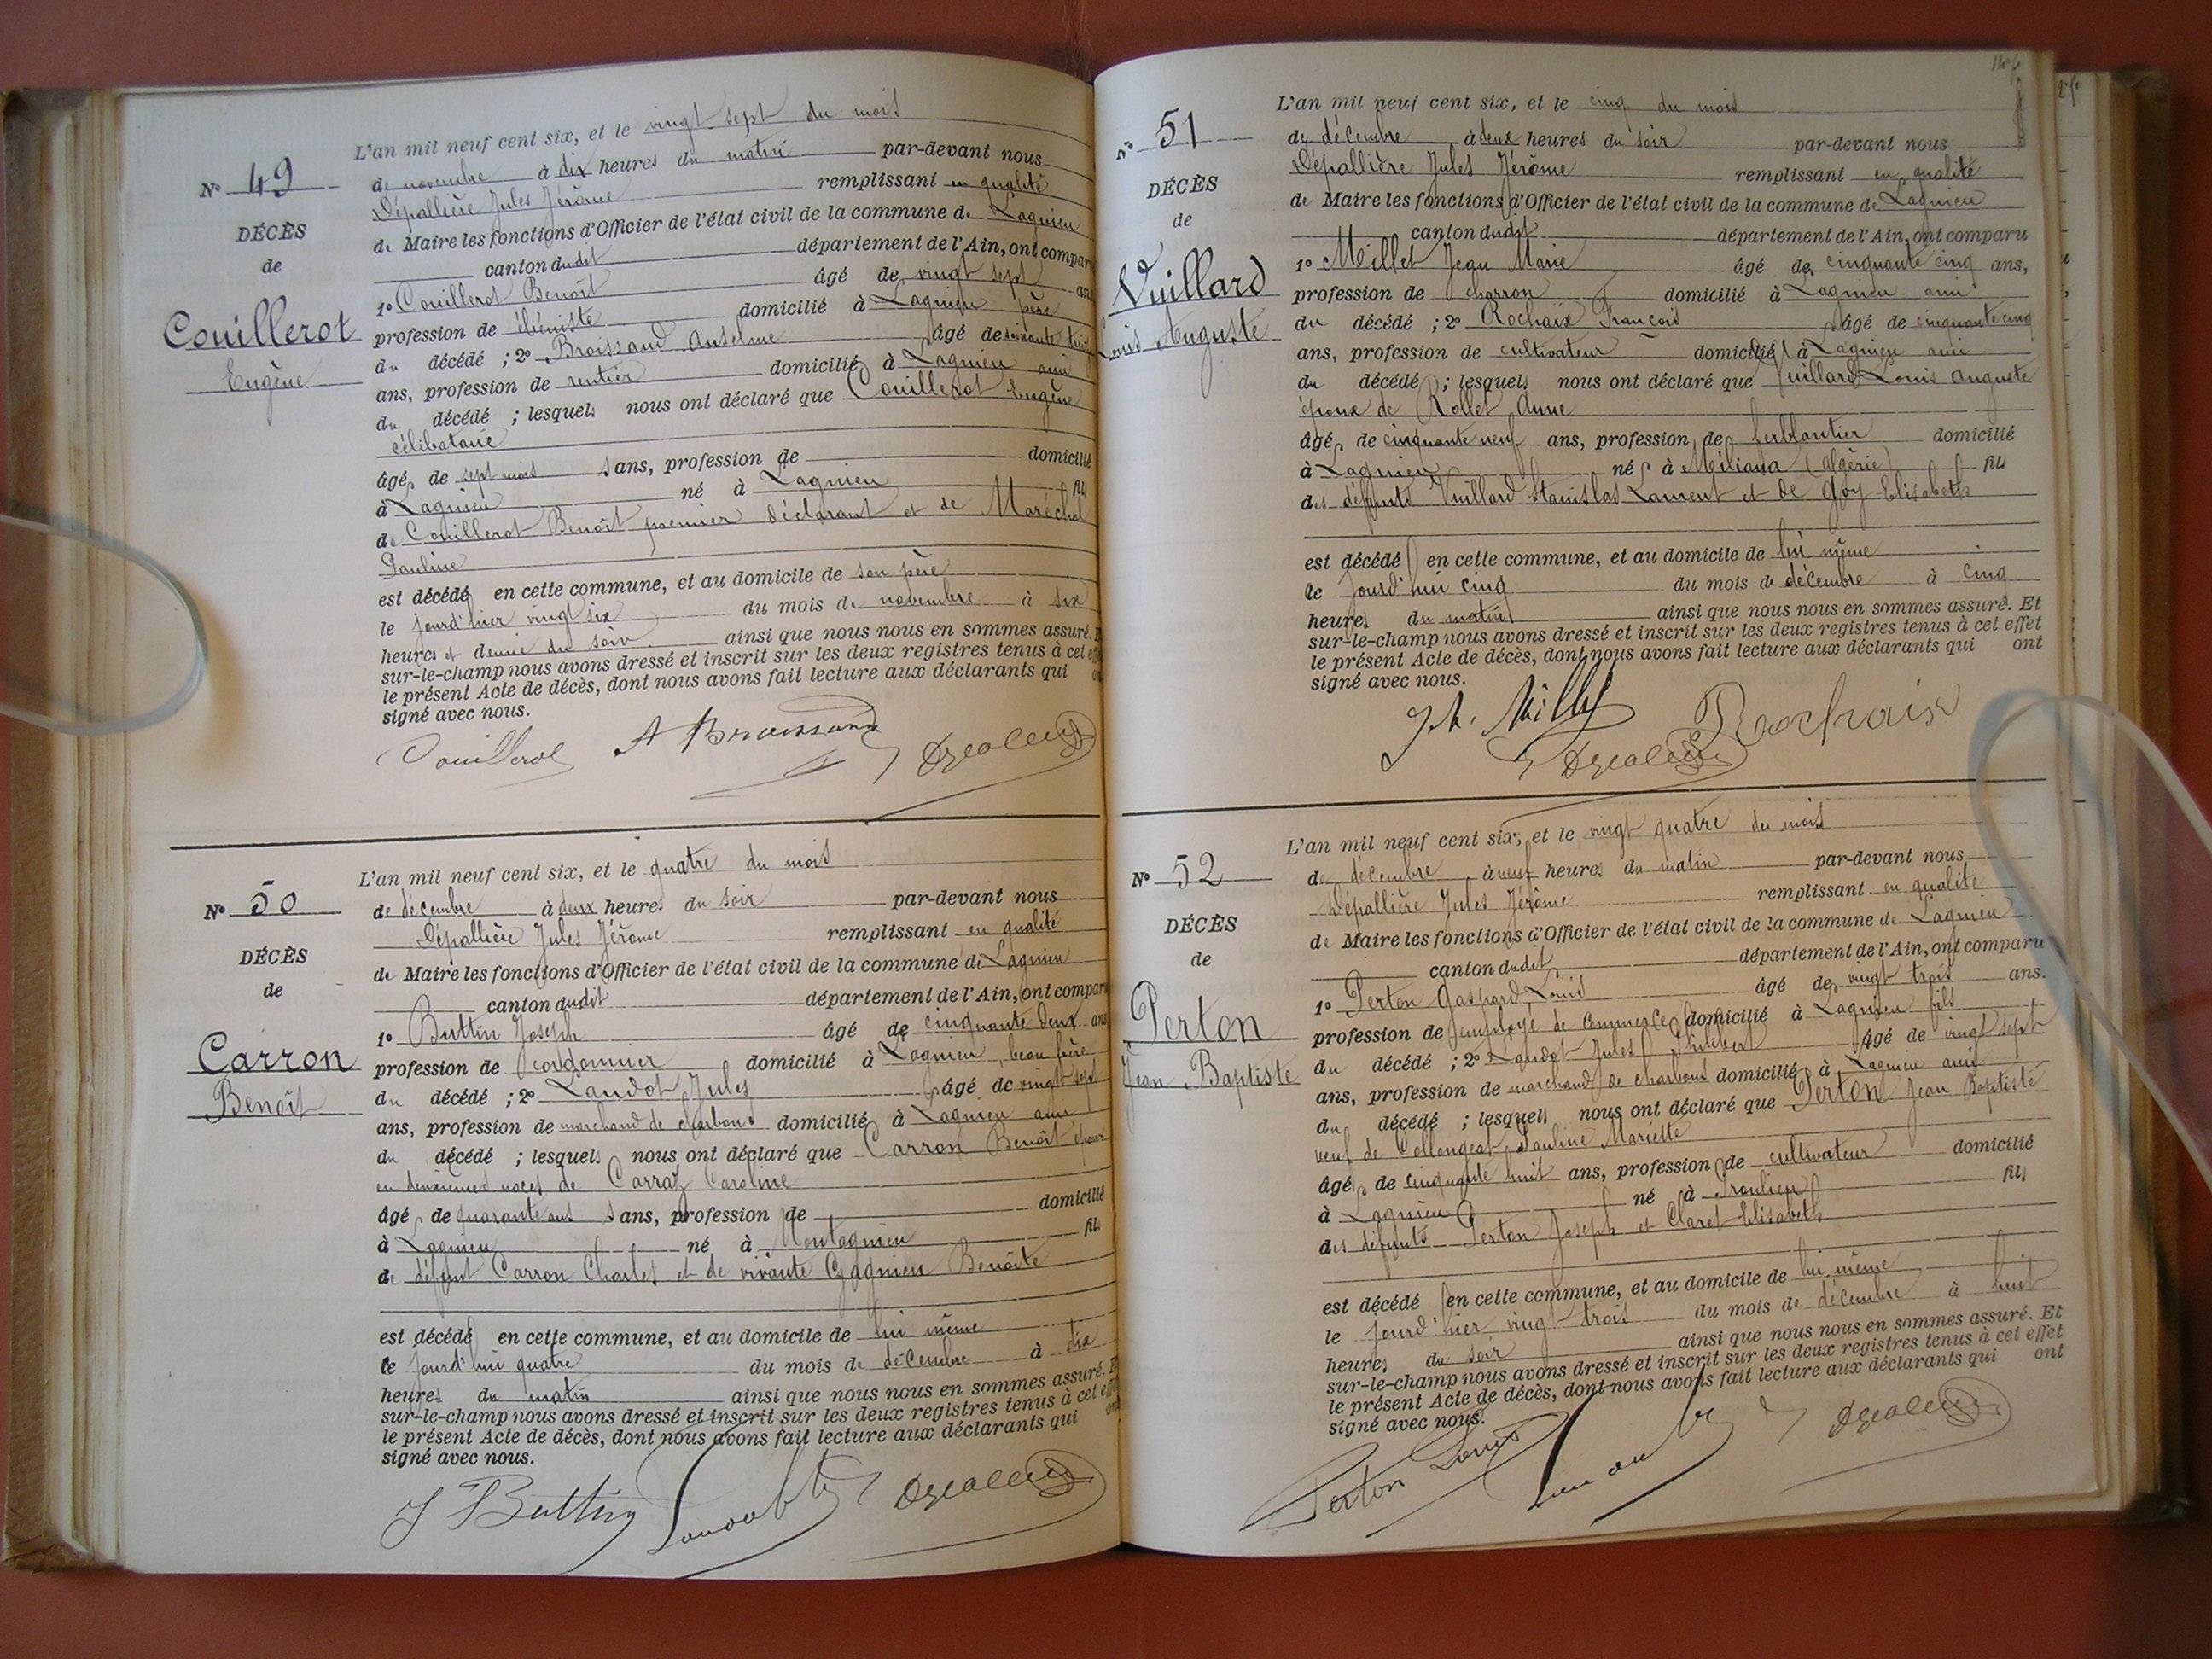 L'an mil neuf cent six, et le vingt sept du mois
N° 49
de novembre à dix heures du matin par-devant nous
Dépallière Jules Jérôme remplissant en qualité
DÉCÈS
de Maire les fonctions d'Officier de l'état civil de la commune de Lagnieu
de
canton dudit département de l'Ain, ont compar
1° Couillerot Benoît âgé de vingt sept ans
Couillerot
profession de ébéniste domicilié à Lagnieu père
Eugène
du décédé ; 2° Broissand Anselme âgé de soixante
ans, profession de rentier domicilié à Lagnieu ami
du décédé ; lesquels nous ont déclaré que Couillerot Eugène
célibataire
âgé de sept mois ans, profession de domicilié
à Lagnieu né à Lagnieu fils
de Couillerot Benoît premier déclarant et de Maréchal
Pauline
est décédé en cette commune, et au domicile de son père
le jourd'hier vingt six du mois de novembre à six
heures et demie du soir ainsi que nous nous en sommes assuré. E
sur-le-champ nous avons dressé et inscrit sur les deux registres tenus à cet eff
le présent Acte de décès, dont nous avons fait lecture aux déclarants qui on
signé avec nous.
Couillerot A Broissand
L'an mil neuf cent six, et le quatre du mois
N° 50
de décembre à deux heures du soir par-devant nous
Dépallière Jules Jérôme remplissant en qualité
DÉCÈS
de Maire les fonctions d'Officier de l'état civil de la commune de Lagnieu
de
canton dudit département de l'Ain, ont compar
1° Buttin Joseph âgé de cinquante deux ans
Carron
profession de cordonnier domicilié à Lagnieu, beau frère
Benoît
du décédé ; 2° Landot Jules âgé de vingt sept
ans, profession de marchand de charbons domicilié à Lagnieu ami
du décédé ; lesquels nous ont déclaré que Carron Benoît époux
en deuxièmes noces de Carraz Caroline
âgé de quarante ans ans, profession de domicilié
à Lagnieu né à Montagnieu fils
de défunt Carron Charles et de vivante Benoîte
est décédé en cette commune, et au domicile de lui même
le jourd'hui quatre du mois de décembre à dix
heures du matin ainsi que nous nous en sommes assuré. E
sur-le-champ nous avons dressé et inscrit sur les deux registres tenus à cet eff
le présent Acte de décès, dont nous avons fait lecture aux déclarants qui on
signé avec nous.
J Buttin
L'an mil neuf cent six, et le cinq du mois
N° 51
de décembre à deux heures du soir par-devant nous
Dépallière Jules Jérôme remplissant en qualité
DÉCÈS
de Maire les fonctions d'Officier de l'état civil de la commune de Lagnieu
de
canton dudit département de l'Ain, ont comparu
1° Millet Jean Marie âgé de cinquante cinq ans,
Vuillard
profession de charron domicilié à Lagnieu ami
Louis Auguste
du décédé ; 2° Rochaix François âgé de cinquante cinq
ans, profession de cultivateur domicilié à Lagnieu ami
du décédé ; lesquels nous ont déclaré que Vuillard Louis Auguste
époux de Rollet Anne
âgé de cinquante neuf ans, profession de ferblantier domicilié
à Lagnieu né à Miliana (Algérie) fils
des défunts Vuillard Stanislas Laurent et de Goy Elisabeth
est décédé en cette commune, et au domicile de lui même
le jourd'hui cinq du mois de décembre à cinq
heures du matin ainsi que nous nous en sommes assuré. Et
sur-le-champ nous avons dressé et inscrit sur les deux registres tenus à cet effet
le présent Acte de décès, dont nous avons fait lecture aux déclarants qui ont
signé avec nous.
Millet Rochaix
L'an mil neuf cent six, et le vingt quatre du mois
N° 52
de décembre à neuf heures du matin par-devant nous
Dépallière Jules Jérôme remplissant en qualité
DÉCÈS
de Maire les fonctions d'Officier de l'état civil de la commune de Lagnieu
de
canton dudit département de l'Ain, ont comparu
1° Perton Gaspard Louis âgé de vingt trois ans.
Perton
profession de employé de commerce domicilié à Lagnieu fils
Jean Baptiste
du décédé ; 2° Landot Jules Philibert âgé de vingt sept
ans, profession de marchand de charbons domicilié à Lagnieu ami
du décédé ; lesquels nous ont déclaré que Perton Jean Baptiste
veuf de Collongeat Pauline Mariette
âgé de cinquante huit ans, profession de cultivateur domicilié
à Lagnieu né à Proulieu fils
des défunts Perton Joseph et Claret Elisabeth
est décédé en cette commune, et au domicile de lui même
le jourd'hier vingt trois du mois de décembre à huit
heures du soir ainsi que nous nous en sommes assuré. Et
sur-le-champ nous avons dressé et inscrit sur les deux registres tenus à cet effet
le présent Acte de décès, dont nous avons fait lecture aux déclarants qui ont
signé avec nous.
Perton Louis